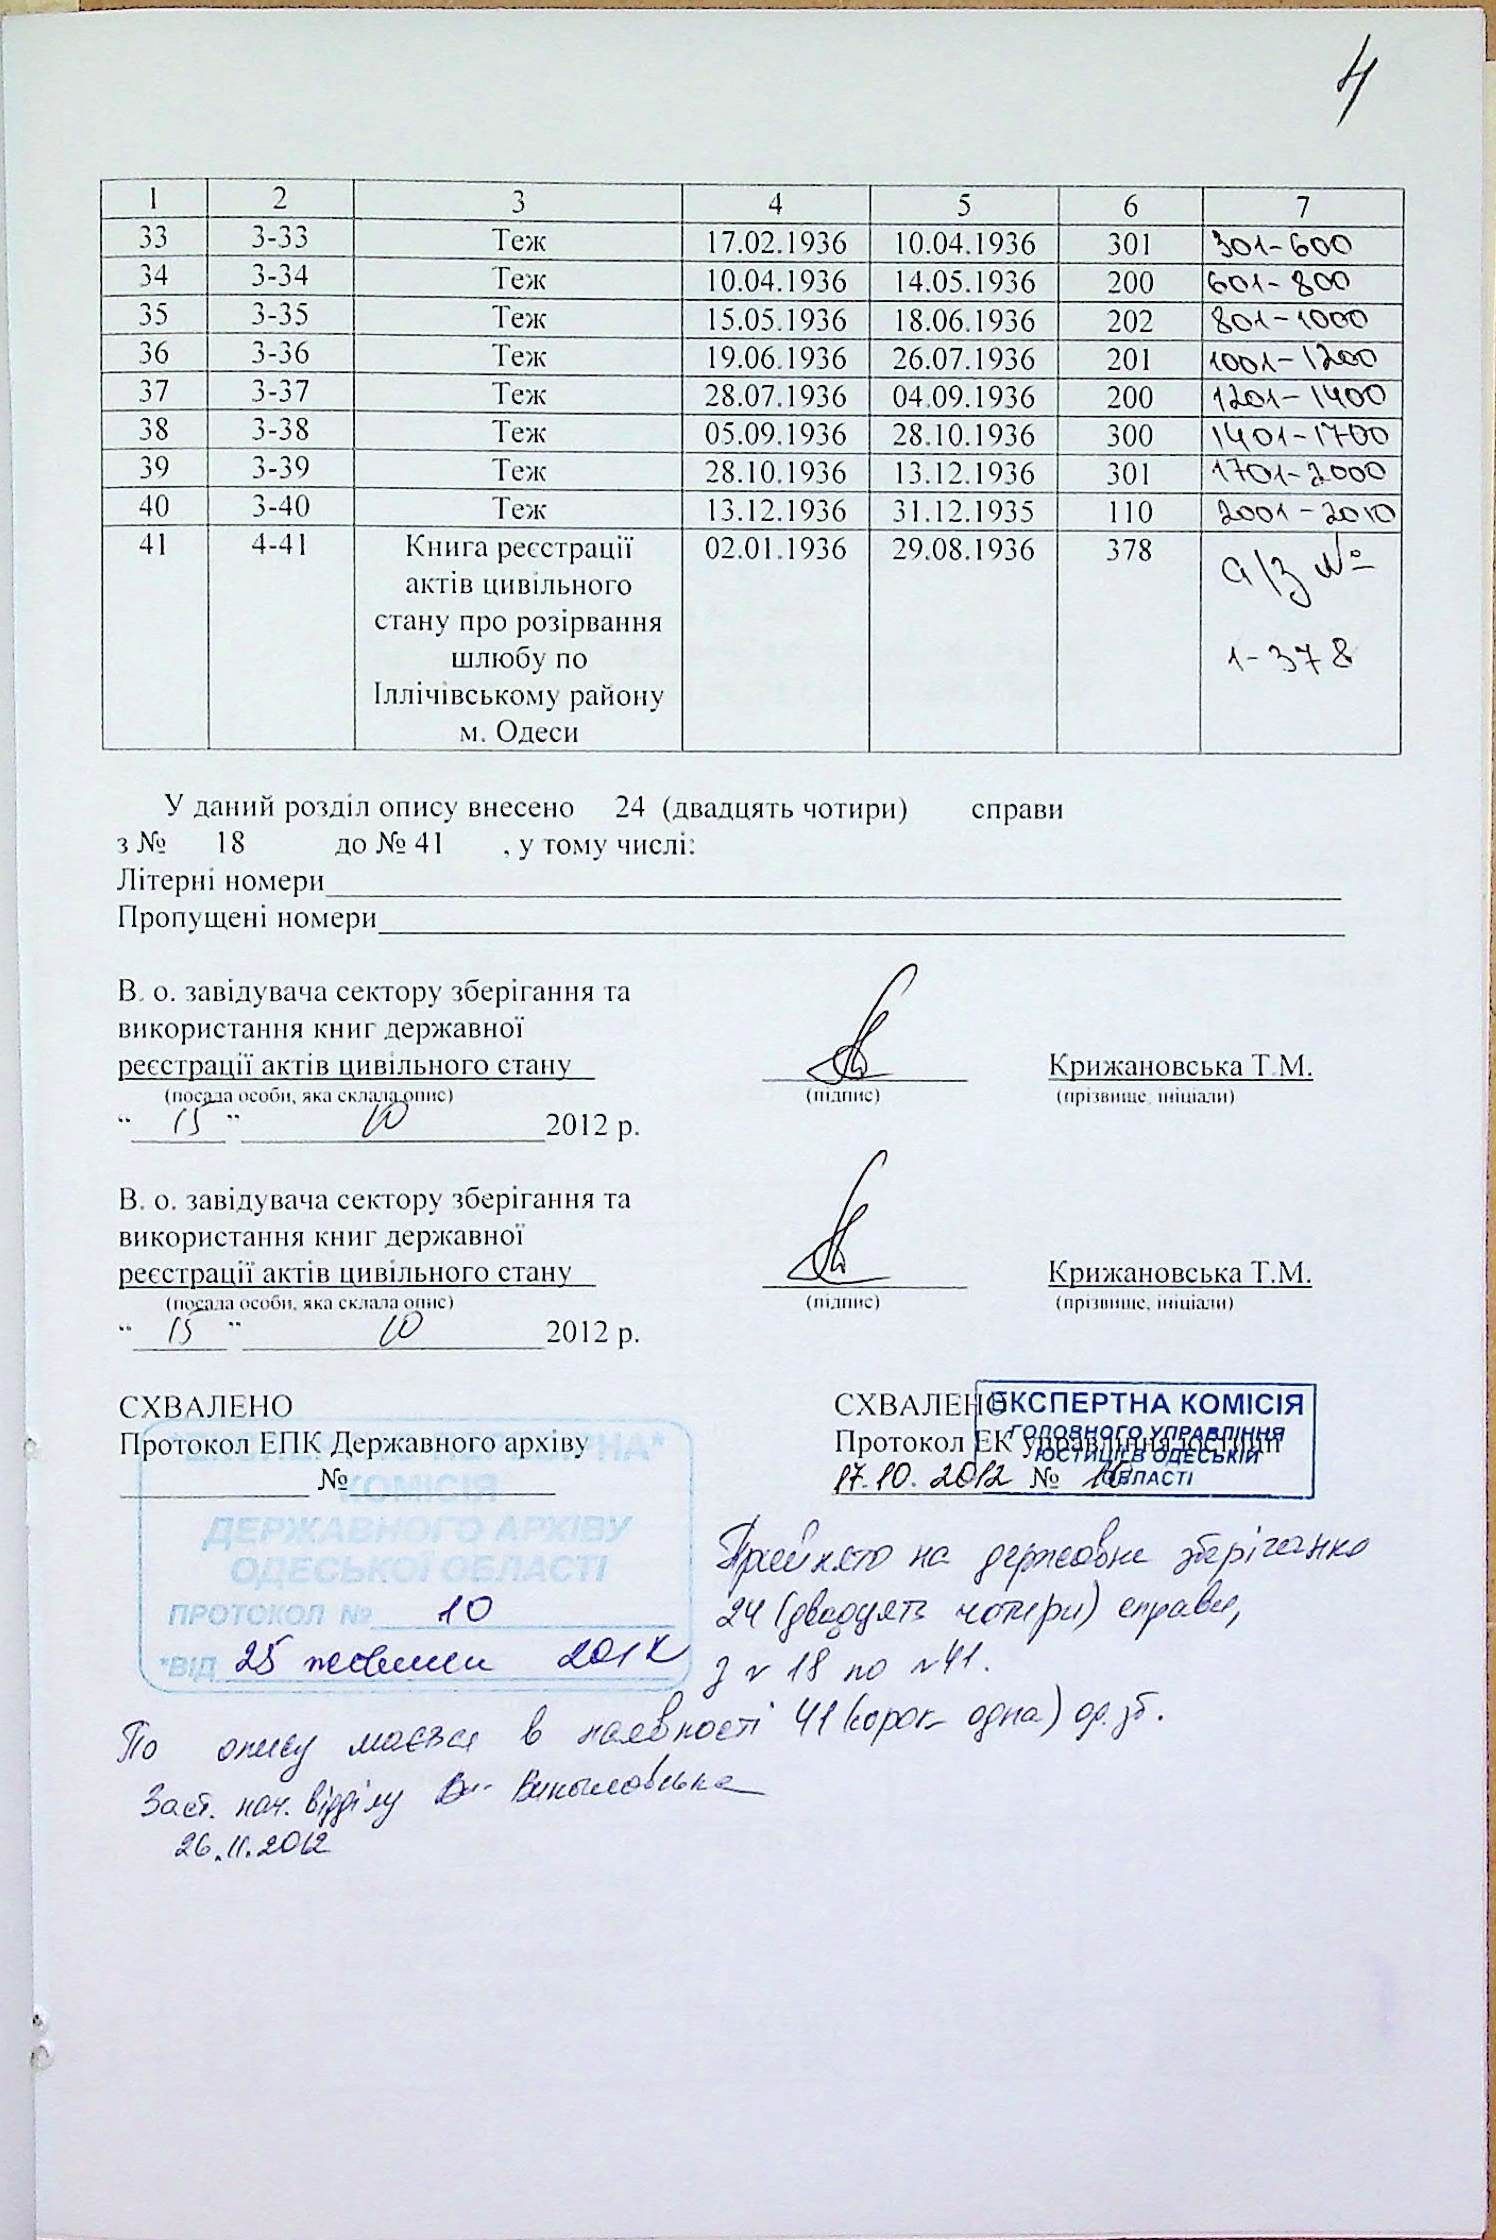 4
1 2 3 4 5 6 7
33 3-33 Теж 17.02.1936 10.04.1936 301 301-600
34 3-34 Теж 10.04.1936 14.05.1936 200 601-800
35 3-35 Теж 15.05.1936 18.06.1936 202 801-1000
36 3-36 Теж 19.06.1936 26.07.1936 201 1001-1200
37 3-37 Теж 28.07.1936 04.09.1936 200 1201-1400
38 3-38 Теж 05.09.1936 28.10.1936 300 1401-1700
39 3-39 Теж 28.10.1936 13.12.1936 301 1701-2000
40 3-40 Теж 13.12.1936 31.12.1935 110 2001-2010
41 4-41 Книга реєстрації 02.01.1936 29.08.1936 378 а/з №
актів цивільного
стану про розірвання
шлюбу по 1-378
Іллічівському району
м. Одеси
У даний розділ опису внесено 24 (двадцять чотири) справи
з № 18 до № 41 , у тому числі:
Літерні номери
Пропущені номери
В. о. завідувача сектору зберігання та
використання книг державної
реєстрації актів цивільного стану Крижановська Т.М.
(посада особи, яка склала опис) (підпис) (прізвище, ініціали)
“ 15 ” 10 2012 р.
В. о. завідувача сектору зберігання та
використання книг державної
реєстрації актів цивільного стану Крижановська Т.М.
(посада особи, яка склала опис) (підпис) (прізвище, ініціали)
“ 15 ” 10 2012 р.
СХВАЛЕНО СХВАЛЕНО
Протокол ЕПК Державного архіву Протокол ЕК управління юстиції
№ 17.10.2012 № 10
ЕКСПЕРТНА КОМІСІЯ
ГОЛОВНОГО УПРАВЛІННЯ
ЮСТИЦІЇ В ОДЕСЬКІЙ
ОБЛАСТІ
*ЕКСПЕРТНО-ПЕРЕВІРНА*
КОМІСІЯ
ДЕРЖАВНОГО АРХІВУ
ОДЕСЬКОЇ ОБЛАСТІ
ПРОТОКОЛ № 10
*ВІД 25 жовтня 2012
Прийнято на державне зберігання
24 (двадцять чотири) справи,
з № 18 по №41.
По опису мається в наявності 41 (сорок одна) од. зб.
Заст. нач. відділу
26.11.2012